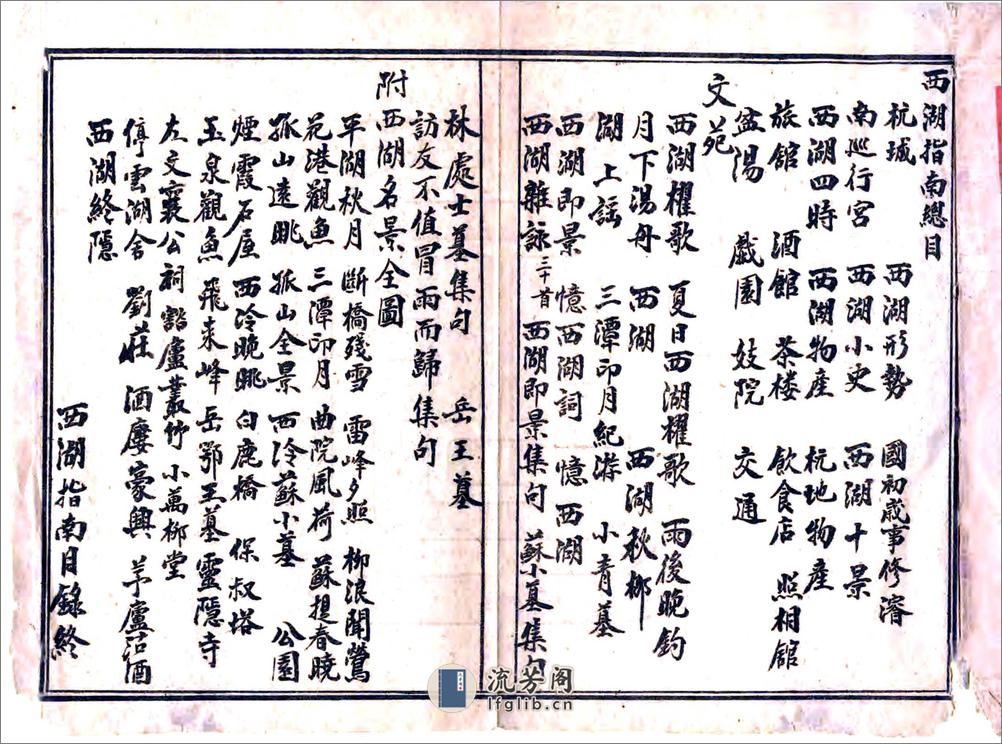 西湖指南總目
杭城 西湖形勢 國初歲事修濬
南巡行宮 西湖小史 西湖十景
西湖四時 西湖物産 杭地物産
旅館 酒館 茶楼 飲食店 照相館
盆湯 戲園 妓院 交通
文苑
西湖櫂歌 夏日西湖櫂歌 雨後晚釣
月下湯舟 西湖 西湖秋柳
湖上謡 三潭印月紀游 小青墓
西湖即景 憶西湖詞 憶西湖
西湖雜詠 三十首 西湖即景集句 蘇小墓集句
林處士墓集句 岳王墓
訪友不值冒雨而歸 集句
附西湖名景全圖
平湖秋月 斷橋殘雪 雷峰夕照 柳浪聞鶯
花港觀魚 三潭印月 曲院風荷 蘇提春曉
孤山遠眺 孤山全景 西泠蘇小墓 公園
煙霞石屋 西泠晚眺 白鹿橋 保叔塔
玉泉觀魚 飛来峰 岳鄂王墓 靈隱寺
左文襄公祠 豁廬叢竹 小萬柳堂
停雲湖舍 劉莊 酒廔豪興 茅廬沽酒
西湖終隱
西湖指南目錄終
流芳阁
lfglib.cn